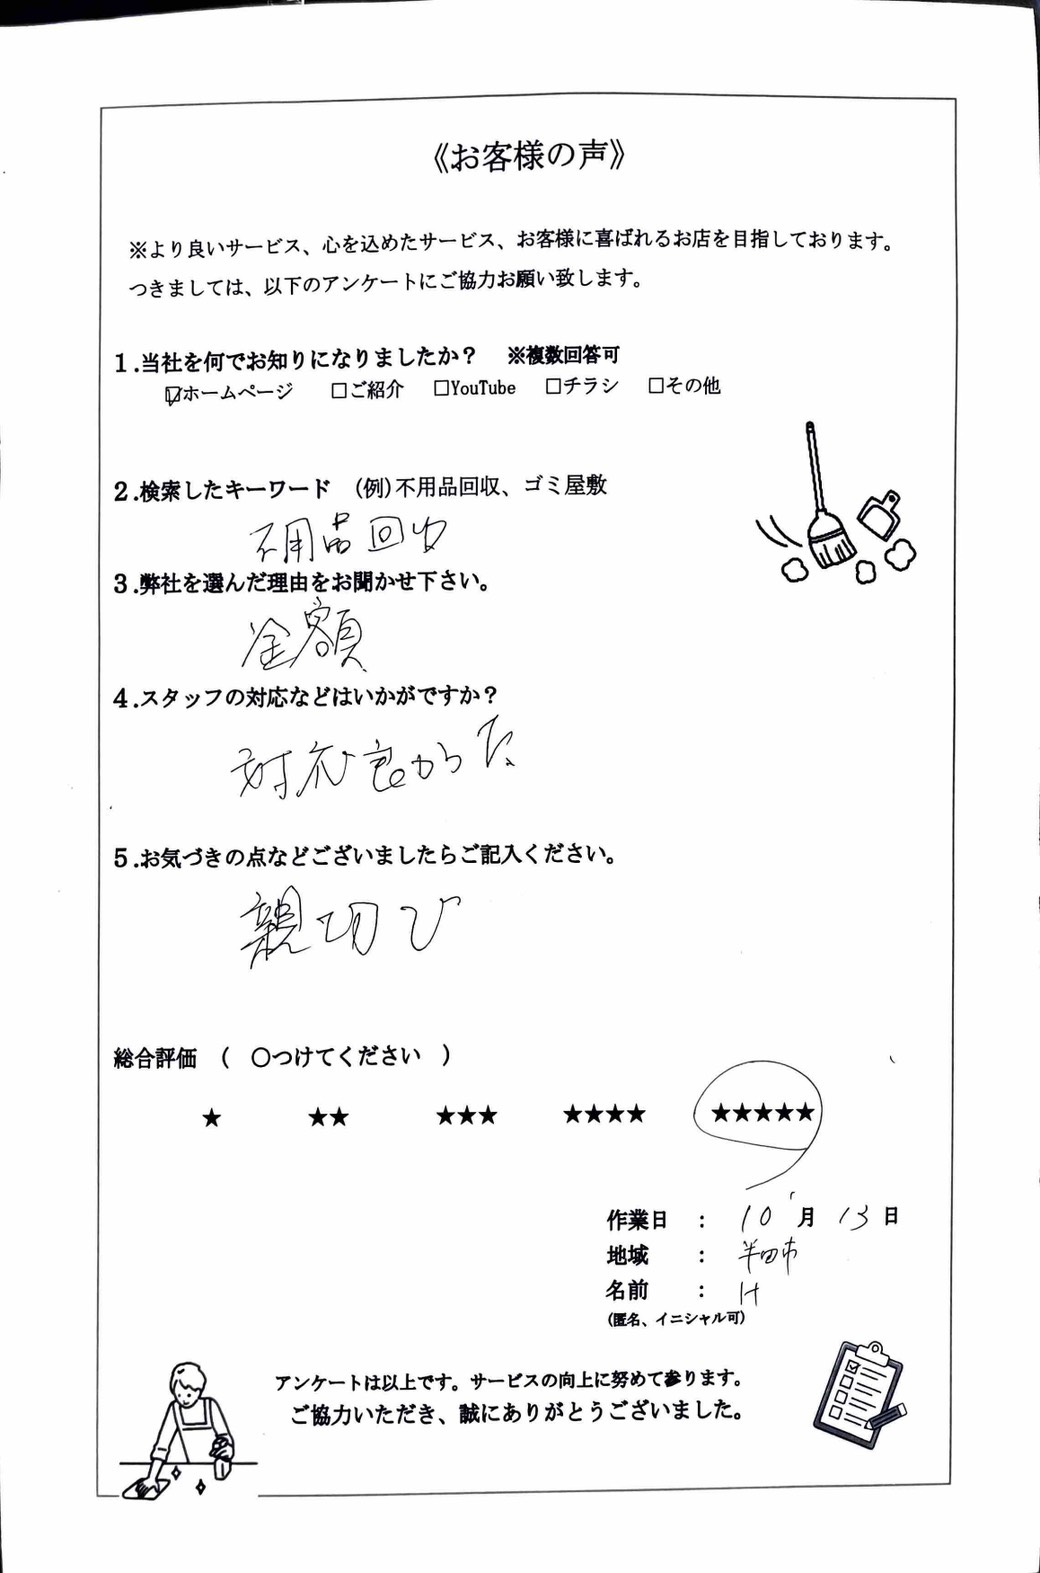 《お客様の声》
※より良いサービス、心を込めたサービス、お客様に喜ばれるお店を目指しております。
つきましては、以下のアンケートにご協力お願い致します。
1.当社を何でお知りになりましたか？　※複数回答可
☑ホームページ　□ご紹介　□YouTube　□チラシ　□その他
2.検索したキーワード　(例)不用品回収、ゴミ屋敷
不用品回収
3.弊社を選んだ理由をお聞かせ下さい。
金額
4.スタッフの対応などはいかがですか？
対応良かった
5.お気づきの点などございましたらご記入ください。
親切
総合評価　(　〇つけてください　)
★　★★　★★★　★★★★　★★★★★
作業日　：　10月 13日
地域　：　半田市
名前　：　H
(匿名、イニシャル可)
アンケートは以上です。サービスの向上に努めて参ります。
ご協力いただき、誠にありがとうございました。